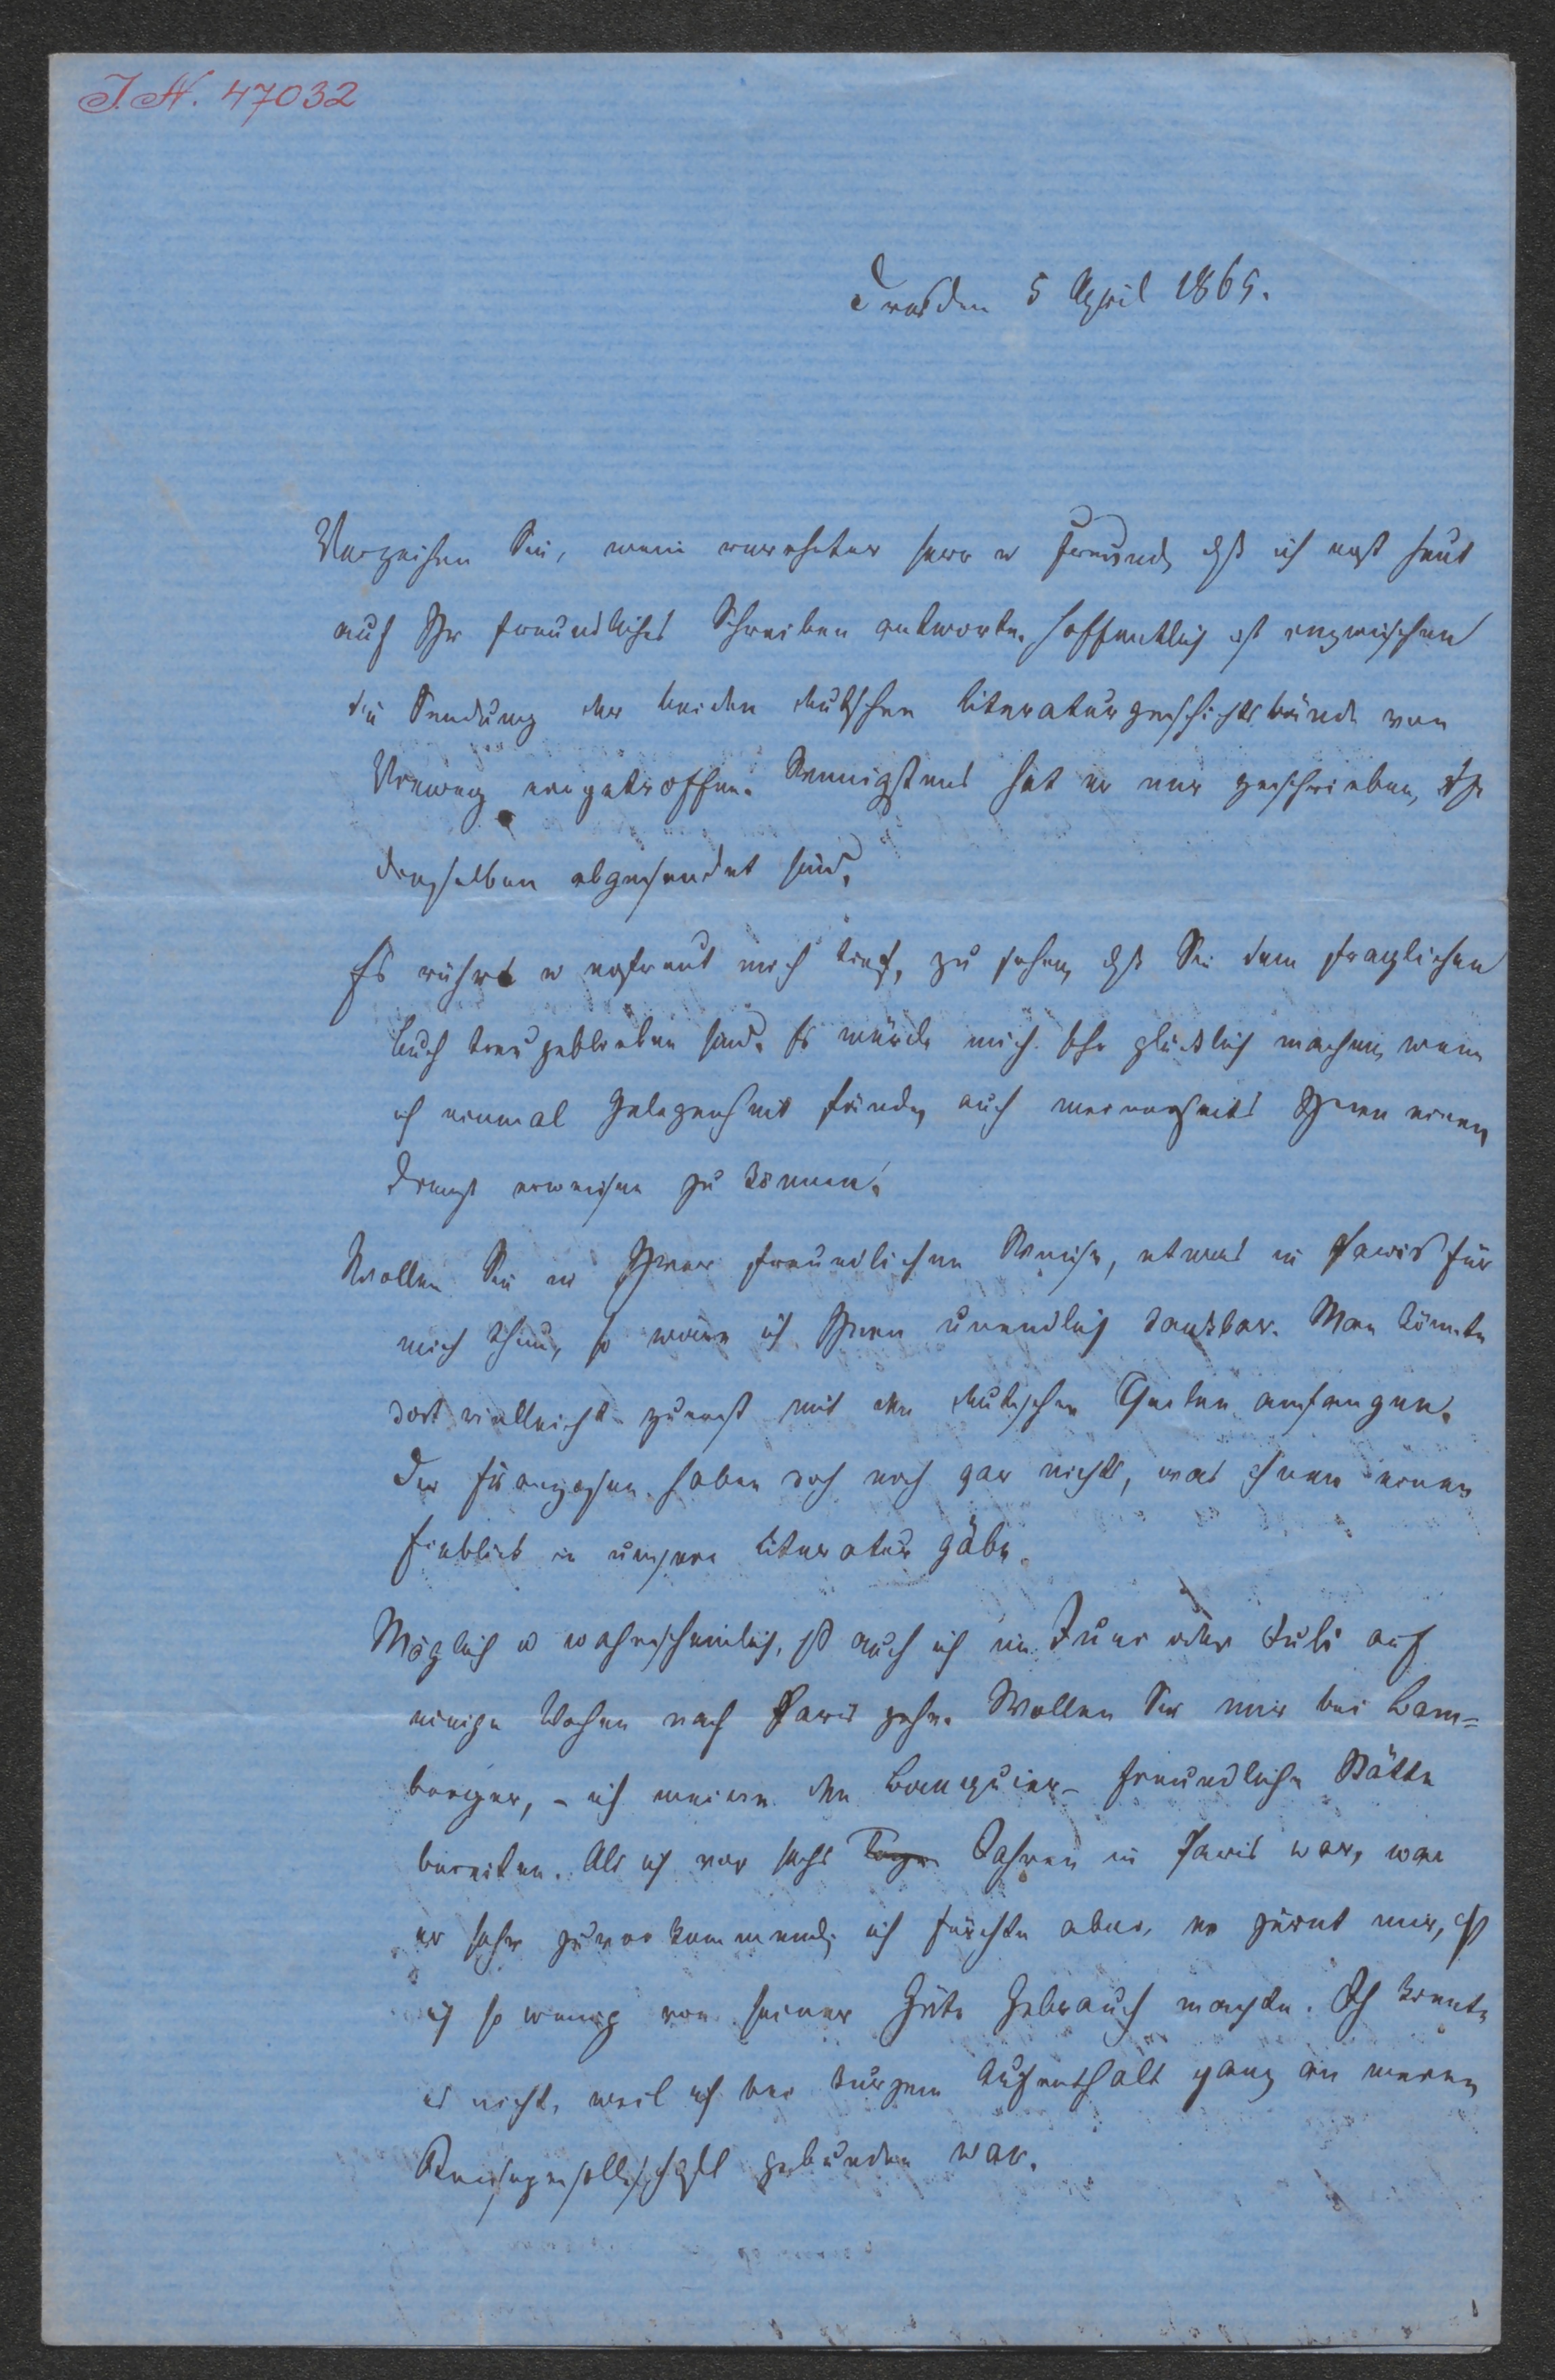 J. N. 47032
Dresden 5 April 1865.
Verzeihen Sie, mein verehrter Herr u Freund, dß ich erst heut
auf Ihr freundliches Schreiben antworte. Hoffentlich ist inzwischen
die Sendung der beiden deutschen Literaturgeschichtsbände von
Vieweg eingetroffen. Wenigstens hat er mir geschrieben, dß
dieselben abgesendet sind.
Es rührt u erfreut mich tief, zu sehen, dß Sie dem fraglichen
Buch treu geblieben sind. Es würde mich sehr glücklich machen, wenn
ich einmal Gelegenheit fände, auch meinerseits Ihnen einen
Dienst erweisen zu können.
Wollen Sie in Ihrer freundlichen Weise, etwas in Paris für
mich thun, so wäre ich Ihnen unendlich dankbar. Man könnte
dort vielleicht zuerst mit den deutschen Theilen anfangen.
Die Franzosen haben doch noch gar nichts, was ihnen einen
Einblick in unsere Literatur gäbe.
Möglich u wahrscheinlich, dß auch ich im Juni oder Juli auf
einige Wochen nach Paris gehe. Wollen Sie mir bei Bam=
berger, – ich meine den Banquier – freundliche Stätte
bereiten. Als ich vor sechs Tagen Jahren in Paris war, war
er sehr zuvorkommend; ich fürchte aber, er zürnt mir, dß
ich so wenig von seiner Güte Gebrauch machte. Ich konnte
es nicht, weil ich bei kurzem Aufenthalt ganz an meine
Reisegesellschaft gebunden war.